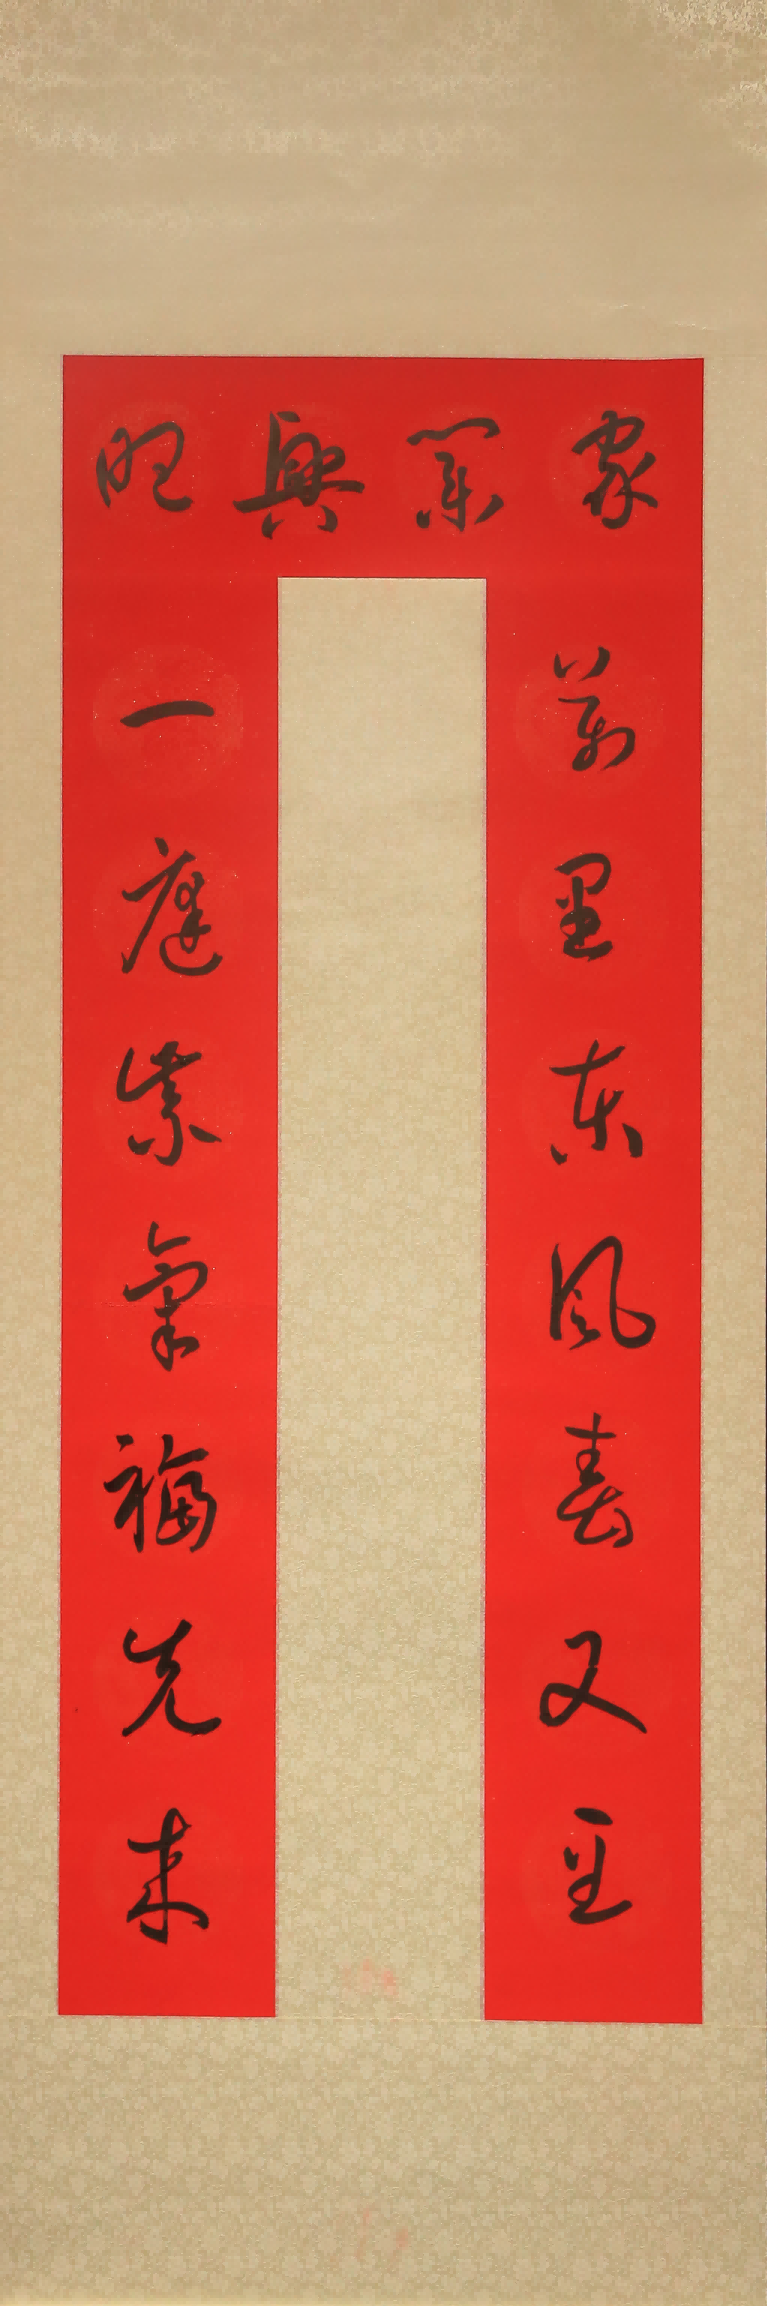 家業興旺
萬里東風春又至
一庭紫氣福先來